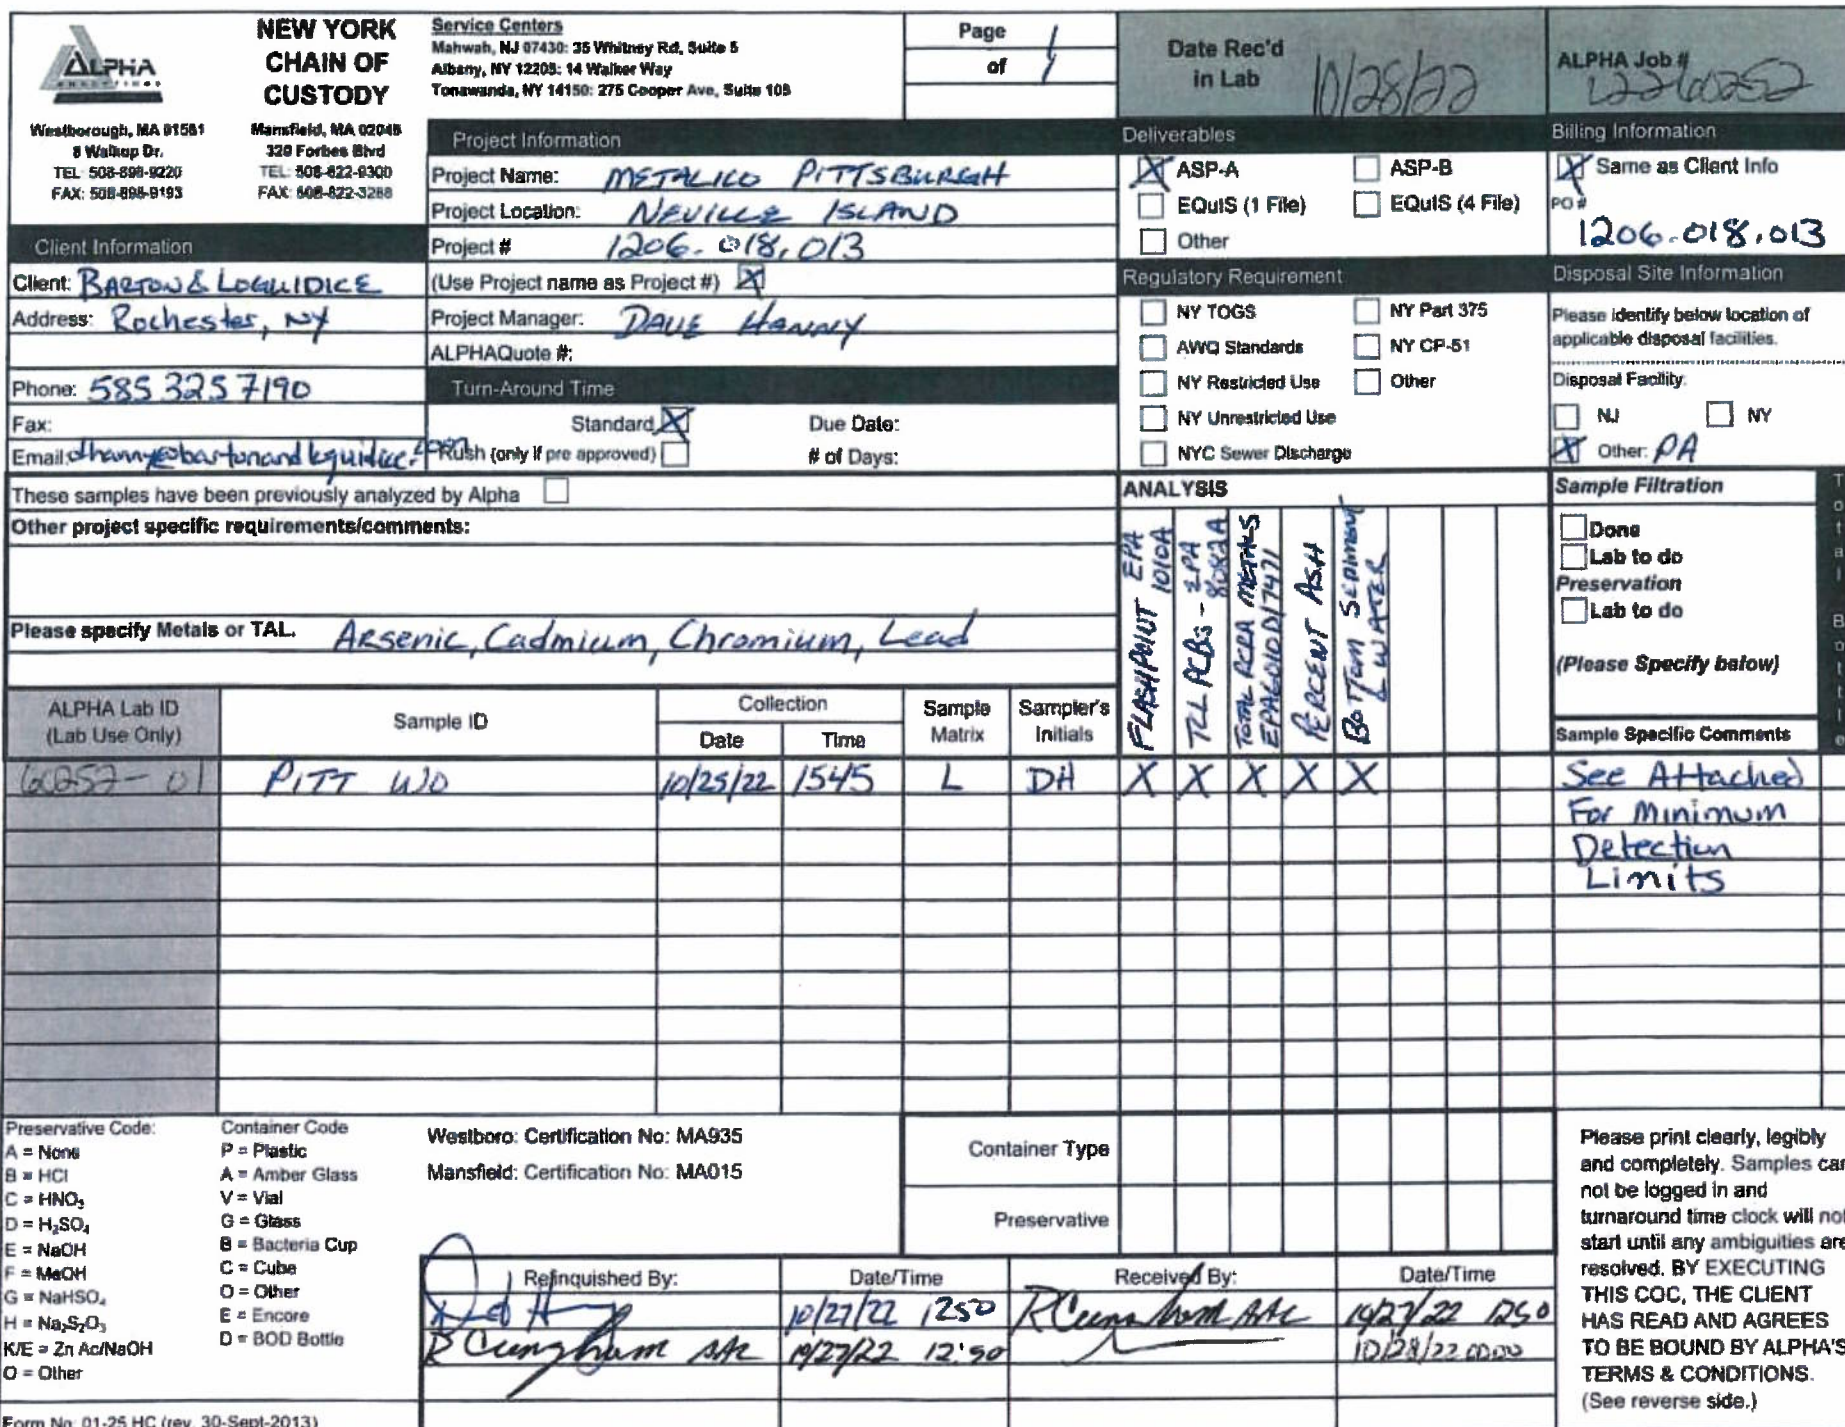 ALPHA
ANALYTICAL
NEW YORK
CHAIN OF
CUSTODY
Westborough, MA 01581
8 Walkup Dr.
TEL: 508-898-9220
FAX: 508-898-9193
Mansfield, MA 02048
320 Forbes Blvd
TEL: 508-822-9300
FAX: 508-822-3288
Service Centers
Mahwah, NJ 07430: 35 Whitney Rd, Suite 5
Albany, NY 12205: 14 Walker Way
Tonawanda, NY 14150: 275 Cooper Ave, Suite 105
Page 1
of 1
Date Rec'd
in Lab 10/28/22
ALPHA Job #
L2260252
Client Information
Client: BARTON & LOGUIDICE
Address: Rochester, NY
Phone: 585 325 7190
Fax:
Email: dhanny@bartonandloguidice.com
Project Information
Project Name: METALICO PITTSBURGH
Project Location: NEVILLE ISLAND
Project # 1206.018.013
(Use Project name as Project #) X
Project Manager: DAVE HANNY
ALPHAQuote #:
Turn-Around Time
Standard X Due Date:
Rush (only if pre approved) # of Days:
Deliverables
X ASP-A ASP-B
EQuIS (1 File) EQuIS (4 File)
Other
Regulatory Requirement
NY TOGS NY Part 375
AWQ Standards NY CP-51
NY Restricted Use Other
NY Unrestricted Use
NYC Sewer Discharge
Billing Information
X Same as Client Info
PO #
1206.018.013
Disposal Site Information
Please identify below location of
applicable disposal facilities.
Disposal Facility:
NJ NY
X Other: PA
These samples have been previously analyzed by Alpha
Other project specific requirements/comments:
Please specify Metals or TAL.
Arsenic, Cadmium, Chromium, Lead
ANALYSIS
FLASHPOINT EPA 1010A
TCL PCBs - EPA 8082A
TOTAL RCRA METALS
EPA6010D/7471
PERCENT ASH
BOTTOM SEDIMENT
& WATER
Sample Filtration
Done
Lab to do
Preservation
Lab to do
(Please Specify below)
Total Bottle
ALPHA Lab ID
(Lab Use Only)
Sample ID
Collection
Date Time
Sample
Matrix
Sampler's
Initials
Sample Specific Comments
60252-01 PITT WO 10/25/22 1545 L DH X X X X X See Attached
For Minimum
Detection
Limits
Preservative Code:
A = None
B = HCl
C = HNO3
D = H2SO4
E = NaOH
F = MeOH
G = NaHSO4
H = Na2S2O3
K/E = Zn Ac/NaOH
O = Other
Container Code
P = Plastic
A = Amber Glass
V = Vial
G = Glass
B = Bacteria Cup
C = Cube
O = Other
E = Encore
D = BOD Bottle
Westboro: Certification No: MA935
Mansfield: Certification No: MA015
Container Type
Preservative
Relinquished By: Date/Time Received By: Date/Time
10/27/22 1250 R Cunningham AAL 10/27/22 1250
R Cunningham AAL 10/27/22 12:50 10/28/22 0000
Please print clearly, legibly
and completely. Samples can
not be logged in and
turnaround time clock will not
start until any ambiguities are
resolved. BY EXECUTING
THIS COC, THE CLIENT
HAS READ AND AGREES
TO BE BOUND BY ALPHA'S
TERMS & CONDITIONS.
(See reverse side.)
Form No: 01-25 HC (rev. 30-Sept-2013)